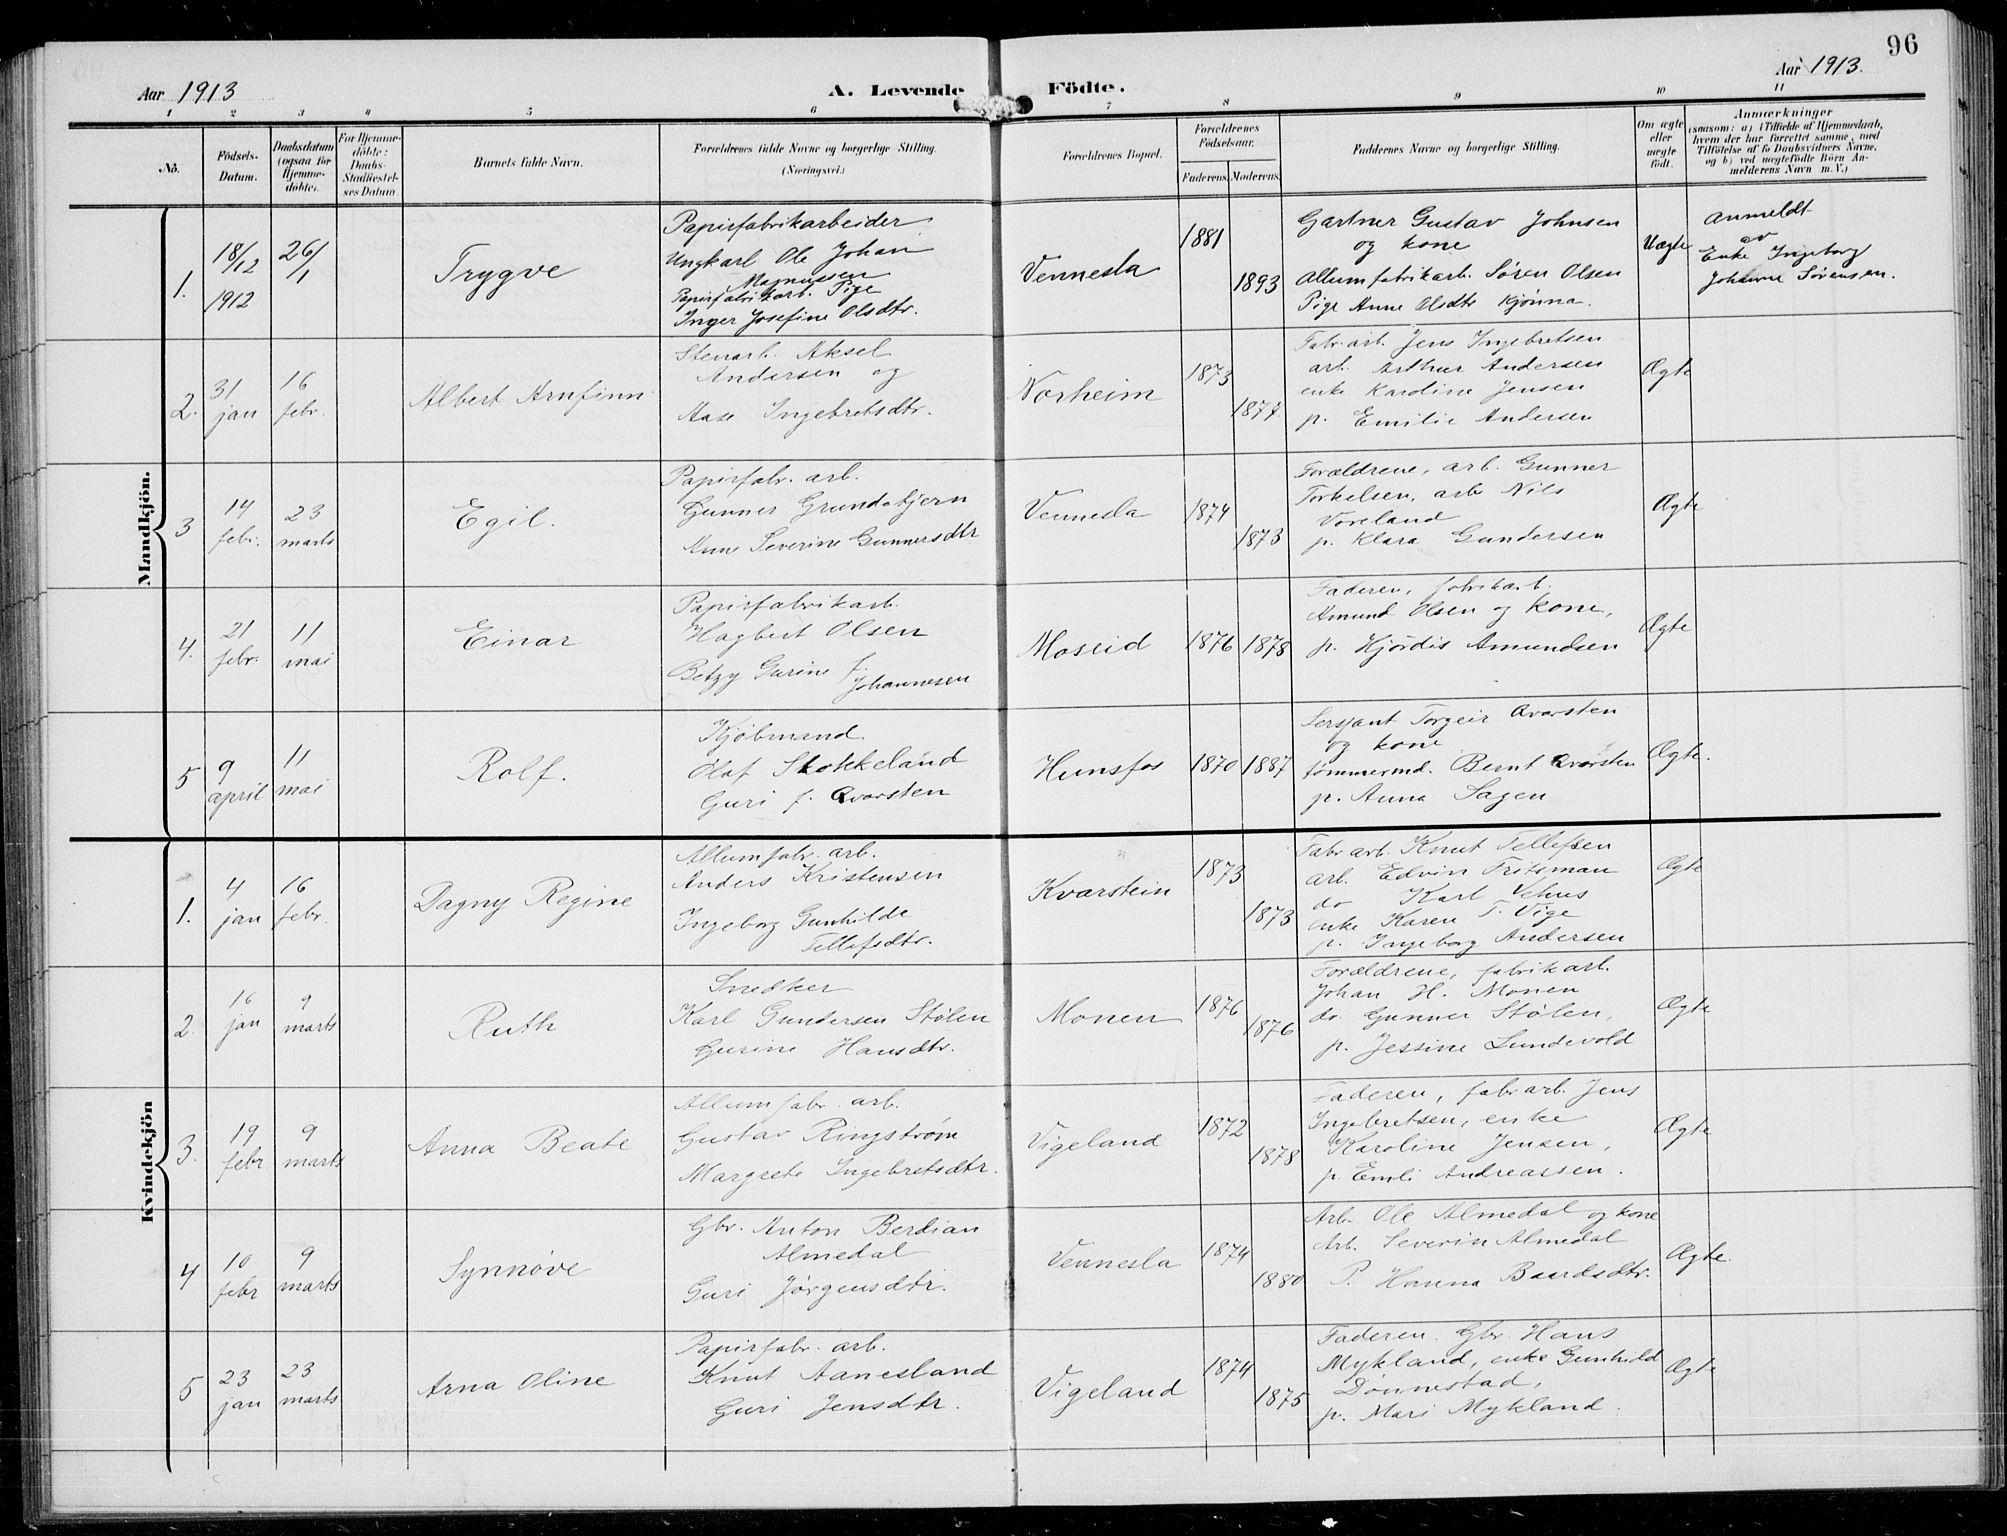 96
Aar 1913
A. Levende Födte.
Aar 1913.
1 2 3 4 5 6 7 8 9 10 11
No.
Födsels-
Datum.
Daabsdatum
(ogsaa for
Hjemme-
döbte).
For Hjemme-
döbte:
Daabs-
Stadfæstel-
ses Datum
Barnets fulde Navn.
Forældrenes fulde Navne og borgerlige Stilling.
(Næringsvei.)
Forældrenes Bopæl.
Forældrenes
Födselsaar.
Faderens.
Moderens.
Faddernes Navne og borgerlige Stilling.
Om ægte
eller
uægte
født.
Anmærkninger
(saasom: a) i Tilfælde af Hjemmedaab,
hvem der har forrettet samme, med
Tilföielse af to Daabsvidners Navne,
og b) ved uægtefödte Börn An-
melderens Navn m. V.)
Mandkjön.
1.
18/12
1912
26/1
Trygve
Papirfabrikarbeider
Ungkarl Ole Johan
Magnussen
Papirfabrikarb. Pige
Inger Josefine Olsdtr.
Vennesla
1881
1893
Gartner Gustav Johnsen
og kone
Allumfabrikarb. Søren Olsen
Pige Anne Olsdtr Kjønna.
Uægte
Anmeldt
av
Enke Ingeborg
Johanne Sørensen.
2.
31
jan
16
febr.
Albert Arnfinn
Stenarb. Aksel
Andersen og
Aase Ingebretsdtr.
Norheim
1873
1877
Fabr. arb. Jens Ingebretsen
arb. Arthur Andersen
enke Karoline Jensen
p. Emilie Andersen
Ægte
3
14
febr.
23
marts
Egil.
Papirfabr. arb.
Gunner Grundetjern
Anne Severine Gunnersdtr
Vennesla
1874
1873
Forældrene, arb. Gunner
Torkelsen, arb Nils
Voreland
p. Klara Gundersen
Ægte
4.
21
febr.
11
mai
Einar
Papirfabrikarb.
Hagbert Olsen
Betzy Gurine f.
Johannesen
Moseid
1876
1878
Faderen, fabrikarb.
Amund Olsen og kone,
p. Hjørdis Amundsen
Ægte
5
9
april
11
mai
Rolf.
Kjøbmand
Olaf Stokkeland
Guri f. Qvarsten
Hunsfos
1870
1887
Sersjant Torgeir Qvarsten
og kone
tømmermd. Bernt Qvarsten
p. Anna Sagen
Ægte.
Kvindekjön
1.
4
jan
16
febr.
Dagny Regine
Allumfabr. arb.
Anders Kristensen
Ingeborg Gunhilde
Tellefsdtr.
Kvarstein
1873
1873
Fabr arb. Knut Tellefsen
arb. Edvin Fritsman
do Karl Vehus
enke Karen T. Vige
p. Ingeborg Andersen
Ægte
2.
16
jan
9
marts
Ruth
Snedker
Karl Gundersen Stølen
Gurine Hansdtr.
Monen
1876
1876
Forældrene, fabrikarb.
Johan H. Monen
do. Gunner Stølen,
p. Jessine Lundevold
Ægte
3.
19
febr
9
marts
Anna Beate
Allumfabr. arb.
Gustav Ringstrøm
Margrete Ingebretsdtr.
Vigeland
1872
1878
Faderen, fabr arb. Jens
Ingebretsen, enke
Karoline Jensen,
p. Emli Andreassen.
Ægte
4
10
febr
9
marts
Synnøve
Gbr. Anton Berdian
Almedal
Guri Jørgensdtr.
Vennesla
1874
1880
Arb. Ole Almedal og kone
Arb. Severin Almedal
P. Hanna Baardsdtr.
Ægte.
5
23
jan
23
marts
Arna Oline
Papirfabr. arb.
Knut Aanesland
Guri Jensdtr.
Vigeland
1874
1875
Faderen. Gbr. Hans
Mykland, enke Gunhild
Dønnestad,
p. Mari Mykland.
Ægte